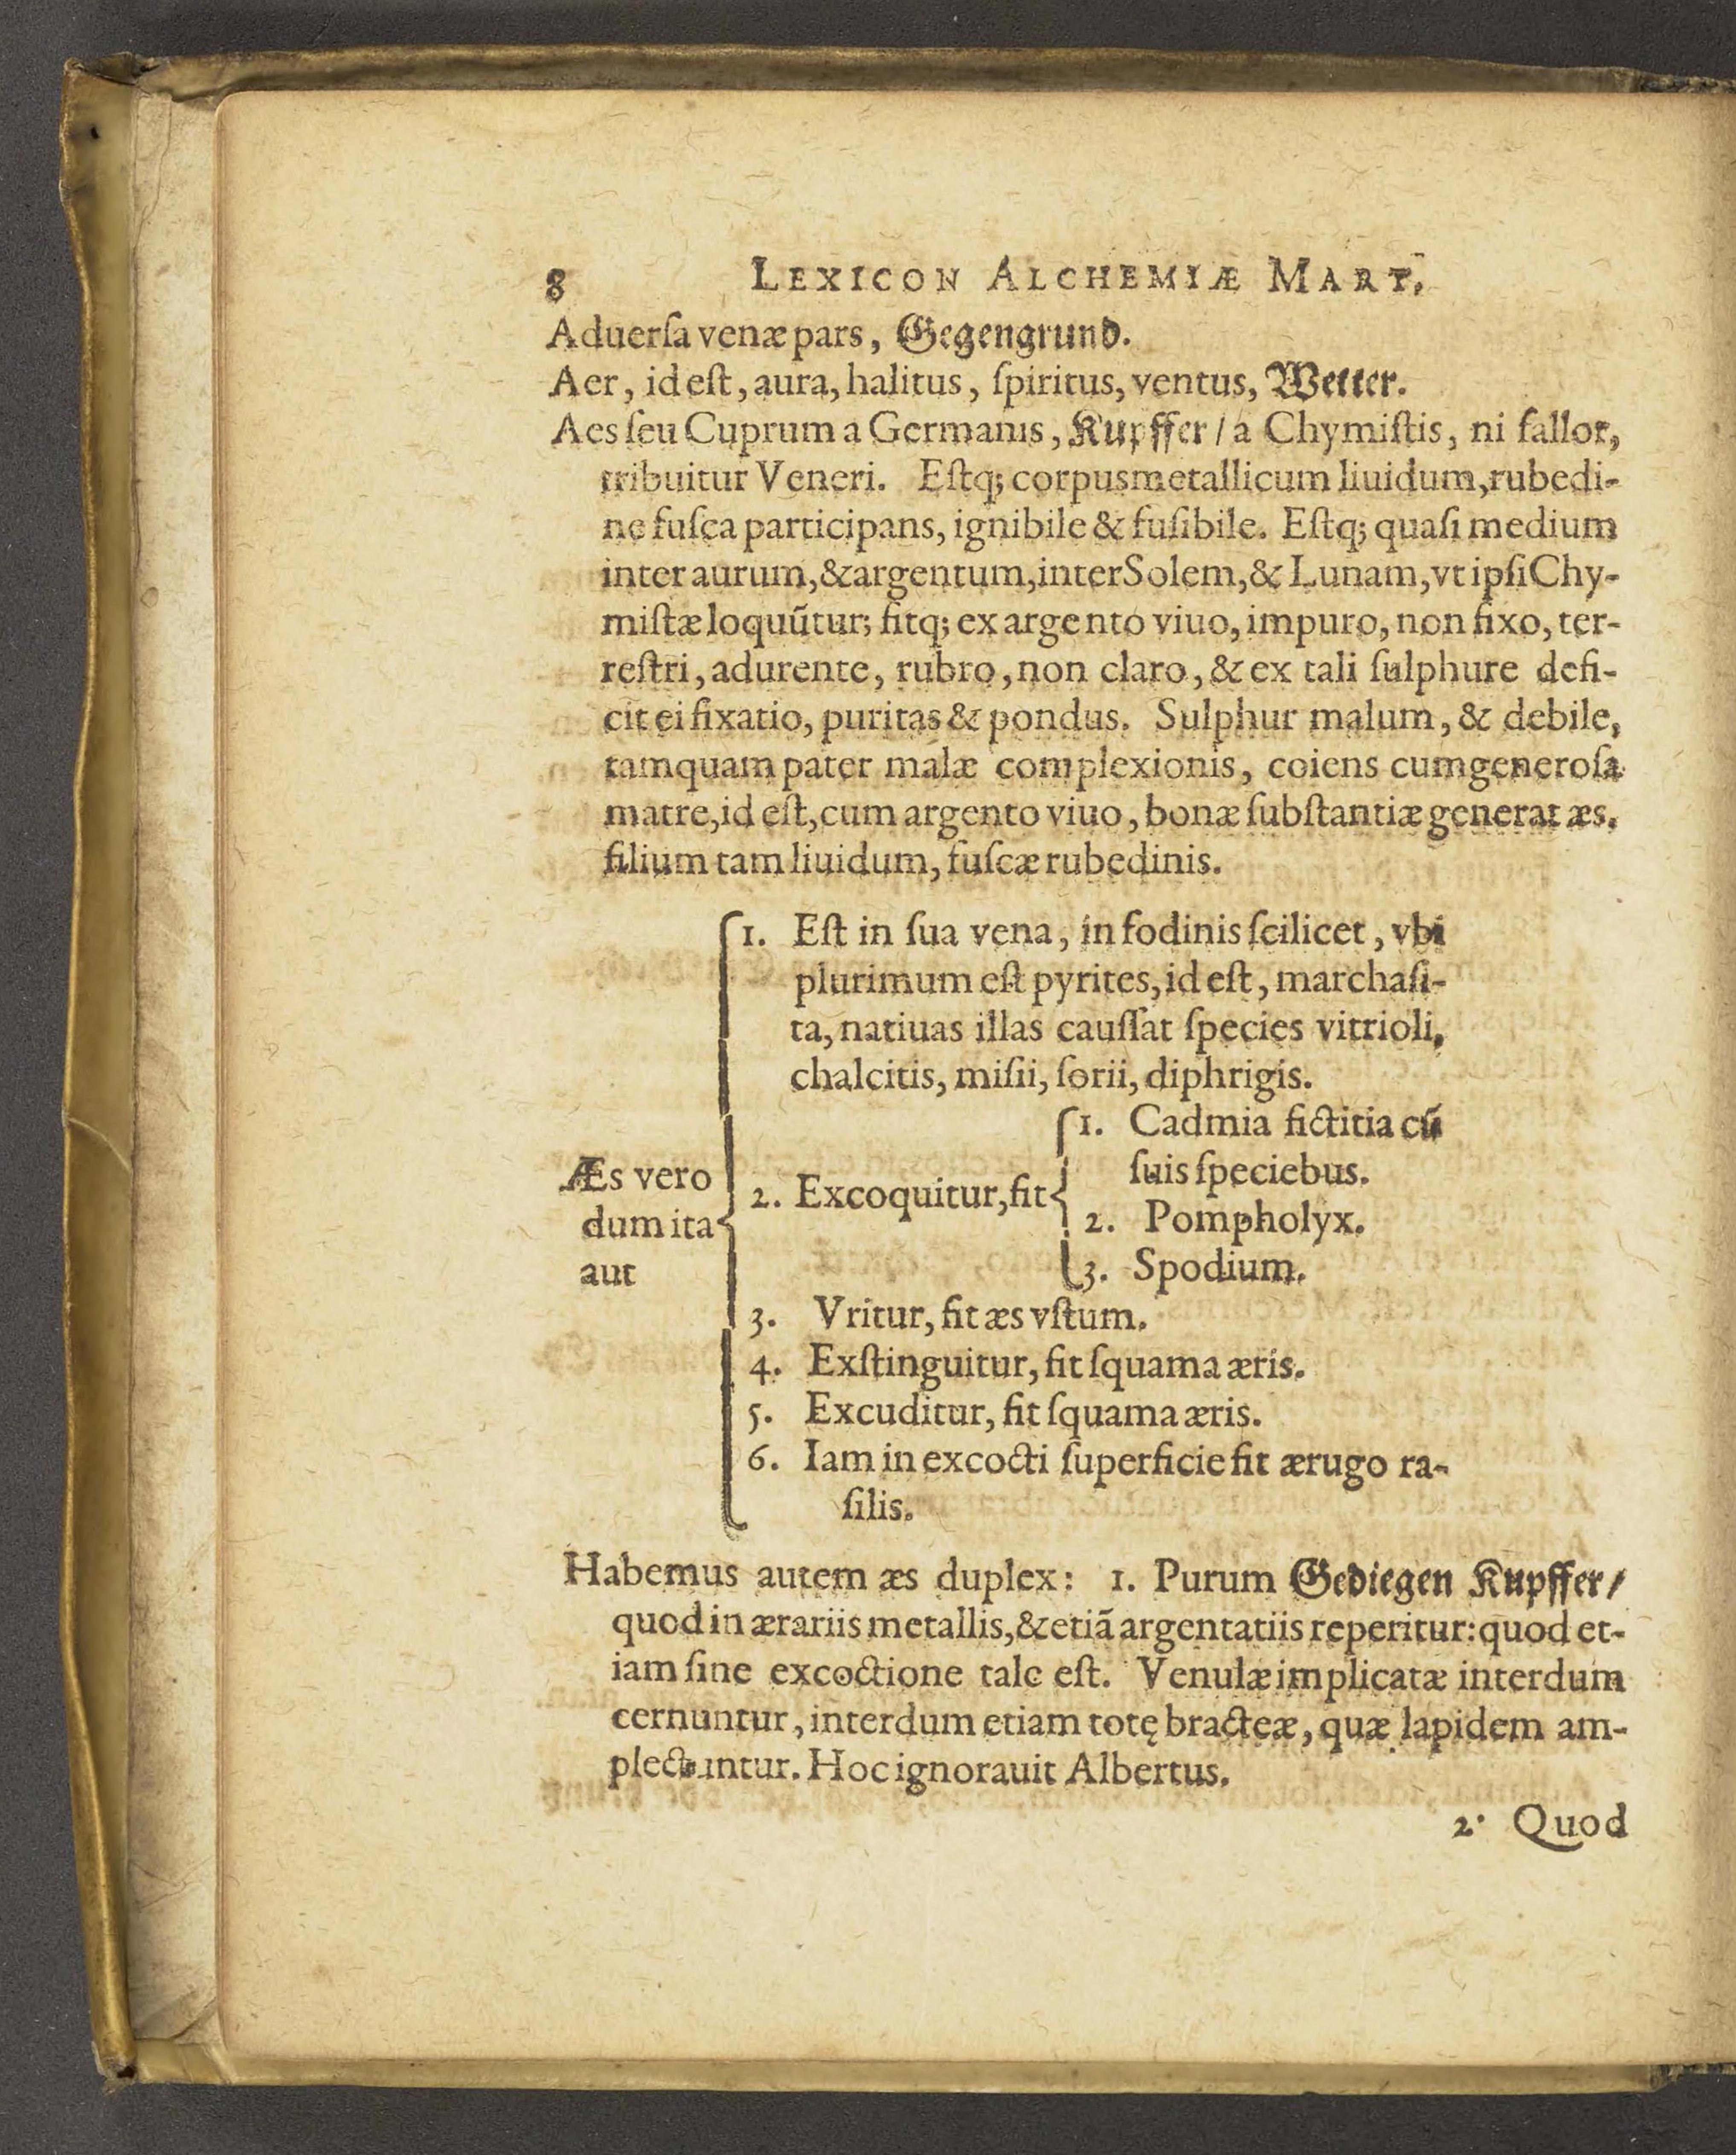 8 LEXICON ALCHEMIÆ MART.
Aduerſa venæ pars, Gegengrund.
Aer, id eſt, aura, halitus, ſpiritus, ventus, Wetter.
Aes ſeu Cuprum a Germanis, Kupffer / a Chymiſtis, ni fallor,
tribuitur Veneri. Eſtq; corpus metallicum liuidum, rubedi-
ne fuſca participans, ignibile & fuſibile. Eſtq; quaſi medium
inter aurum, & argentum, inter Solem, & Lunam, vt ipſi Chy-
miſtæ loquũtur; fitq; ex argento viuo, impuro, non fixo, ter-
reſtri, adurente, rubro, non claro, & ex tali ſulphure defi-
cit ei fixatio, puritas & pondus. Sulphur malum, & debile,
tamquam pater malæ complexionis, coiens cum generoſa
matre, id eſt, cum argento viuo, bonæ ſubſtantiæ generat æs,
filium tam liuidum, fuſcæ rubedinis.
1. Eſt in ſua vena, in fodinis ſcilicet, vbi
plurimum eſt pyrites, id eſt, marchaſi-
ta, natiuas illas cauſſat ſpecies vitrioli,
chalcitis, miſii, ſorii, diphrigis.
Æs vero
dum ita
aut
2. Excoquitur, fit
1. Cadmia fictitia cũ
ſuis ſpeciebus.
2. Pompholyx.
3. Spodium.
3. Vritur, fit æs vſtum.
4. Exſtinguitur, fit ſquama æris.
5. Excuditur, fit ſquama æris.
6. Iam in excocti ſuperficie fit ærugo ra-
ſilis.
Habemus autem æs duplex: 1. Purum Gediegen Kupffer /
quod in ærariis metallis, & etiã argentatiis reperitur: quod et-
iam ſine excoctione tale eſt. Venulæ implicatæ interdum
cernuntur, interdum etiam totę bracteæ, quæ lapidem am-
plectuntur. Hoc ignorauit Albertus.
2. Quod